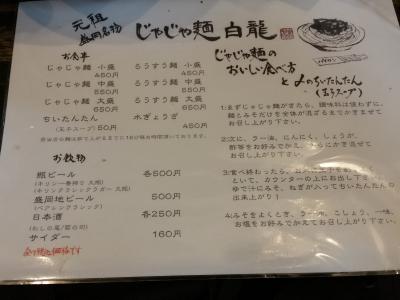 元祖
盛岡名物
じゃじゃ麺 白龍
お食事
じゃじゃ麺 小盛 450円
じゃじゃ麺 中盛 550円
じゃじゃ麺 大盛 650円
ちいたんたん
(玉子スープ) 50円
ろうすう麺 小盛 450円
ろうすう麺 中盛 550円
ろうすう麺 大盛 650円
水ぎょうざ 400円
お飲物
瓶ビール 各500円
(キリン一番搾り 大瓶)
(キリンクラシックラガー 大瓶)
盛岡地ビール 500円
(ベアレンクラシック)
日本酒 各250円
サイダー 160円
全て税込価格です
じゃじゃ麺の
おいしい食べ方
と〆のちいたんたん
(玉子スープ)
1:まずじゃじゃ麺がきたら、調味料は使わずに、
麺とみそだけを全体が混ざるまでかきまぜて
お召し上がり下さい。
2:次に、ラー油、にんにく、しょうが、
酢等をお好みでかえて、
お召し上がり下さい。
3:食べ終わったら、
といて、カウンターの上にお出し下さい。
ゆで汁にみそ、ねぎが入ってちいたんたんの
4:みそをよくとき、ラー油、こしょう、一味、
お塩をお好みでかえてお召し上がり下さい。